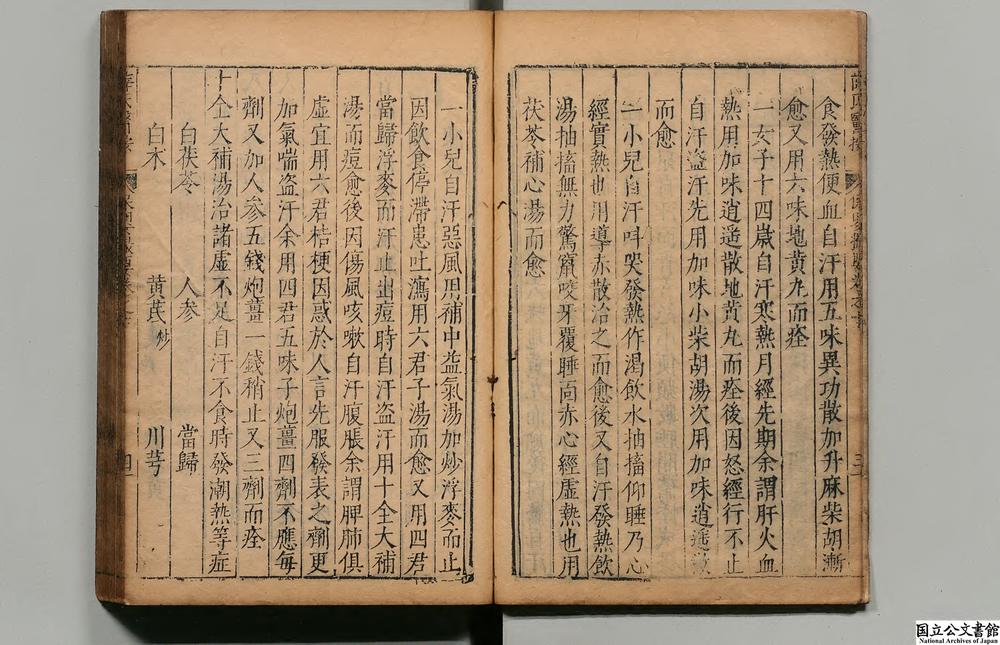 食發熱便血自汗用五味異功散加升麻柴胡漸
愈又用六味地黄丸而痊
一女子十四歳自汗寒熱月經先期余謂肝火血
熱用加味逍遥散地黄丸而痊後因怒經行不止
自汗盗汗先用加味小柴胡湯次用加味逍遥散
而愈
一小兒自汗呌哭發熱作渴飲水抽搐仰睡乃心
經實熱也用導赤散治之而愈後又自汗發熱飲
湯抽搐無力驚竄咬牙覆睡靣赤心經虚熱也用
茯苓補心湯而愈
一小兒自汗惡風用補中益氣湯加炒浮麥而止
因飲食停滯患吐瀉用六君子湯而愈又用四君
當歸浮麥而汗止出痘時自汗盗汗用十全大補
湯而痘愈後因傷風咳嗽自汗腹脹余謂脾肺俱
虚宜用六君桔梗因惑於人言先服發表之劑更
加氣喘盗汗余用四君五味子炮薑四劑不應毎
劑又加人参五錢炮薑一錢稍止又三劑而痊
十全大補湯治諸虚不足自汗不食時發潮熱等症
白茯苓 人参 當歸
白术 黄芪炒 川芎
四
国立公文書館
National Archives of Japan